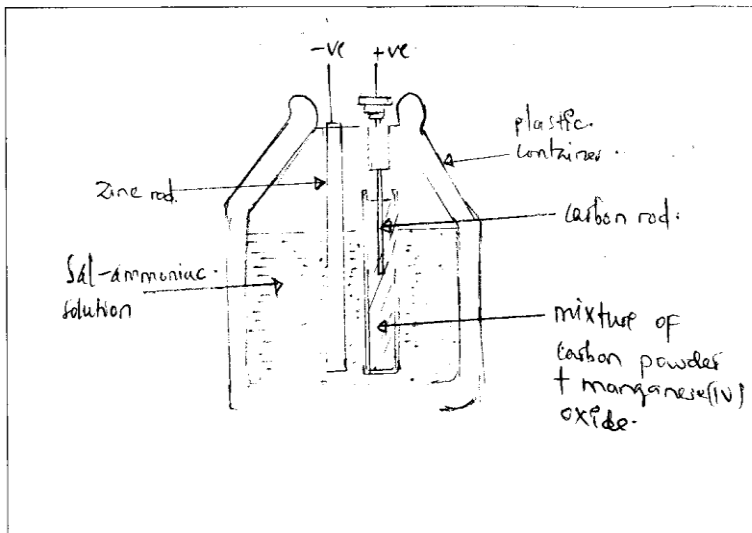 -ve +ve
plastic.
container.
Zinc rod.
carbon rod.
Sal-ammoniac.
solution
mixture of
carbon powder
+ manganese(IV)
oxide.